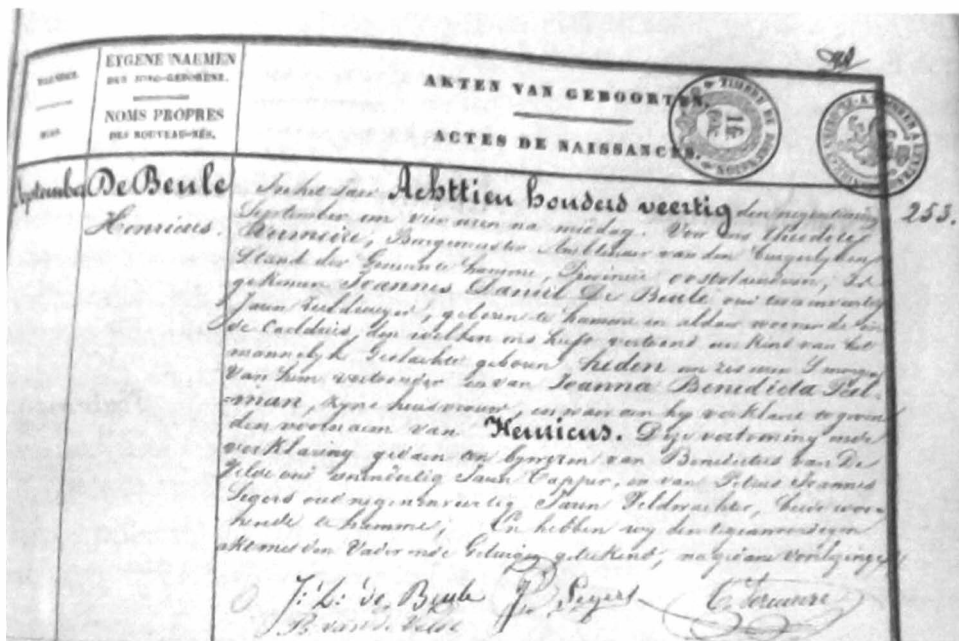 EYGENE NAEMEN
DER JONG-GEBORENE.
NOMS PROPRES
DES NOUVEAU-NÉS.
AKTEN VAN GEBOORTEN.
ACTES DE NAISSANCES.
TIMBRE DE DIMENSION
September
De Beule
Henricus.
253.
In het Jaer Achttien honderd veertig den negentienden
September om vier uren na middag. Voor ons Theodore
Vermeire, Burgemeester Ambtenaer van den Burgerlyken
Stand der Gemeente hamme, Provincie oostvlaenderen, Is
gekomen Joannes Daniel De Beule oud twaenveertig
Jaren, geboren te hamme en aldaer woonende in
de Caeldries, den welken ons heeft vertoond een Kind van het
mannelyk Geslachte geboren heden om zes uren 's morgens
Van hem vertooner en van Joanna Benedicta Peel-
man, zyne huisvrouw, en waer aen hy verklaert te geven
den voornaem van Henricus. Deze vertooning ende
verklaring gedaen ten bywezen van Benedictus van De
Velde oud Jaren Tapper, en van Petrus Joannes
Segers oud negenenveertig Jaren Veldwachter, beide woo-
nende te hamme; En hebben wy den tegenwoordigen
akt met den Vader ende Getuigen geteekend, na gedane Voorlezinge
J: D: de Beule
Segers
Vermeire
B. van de Velde